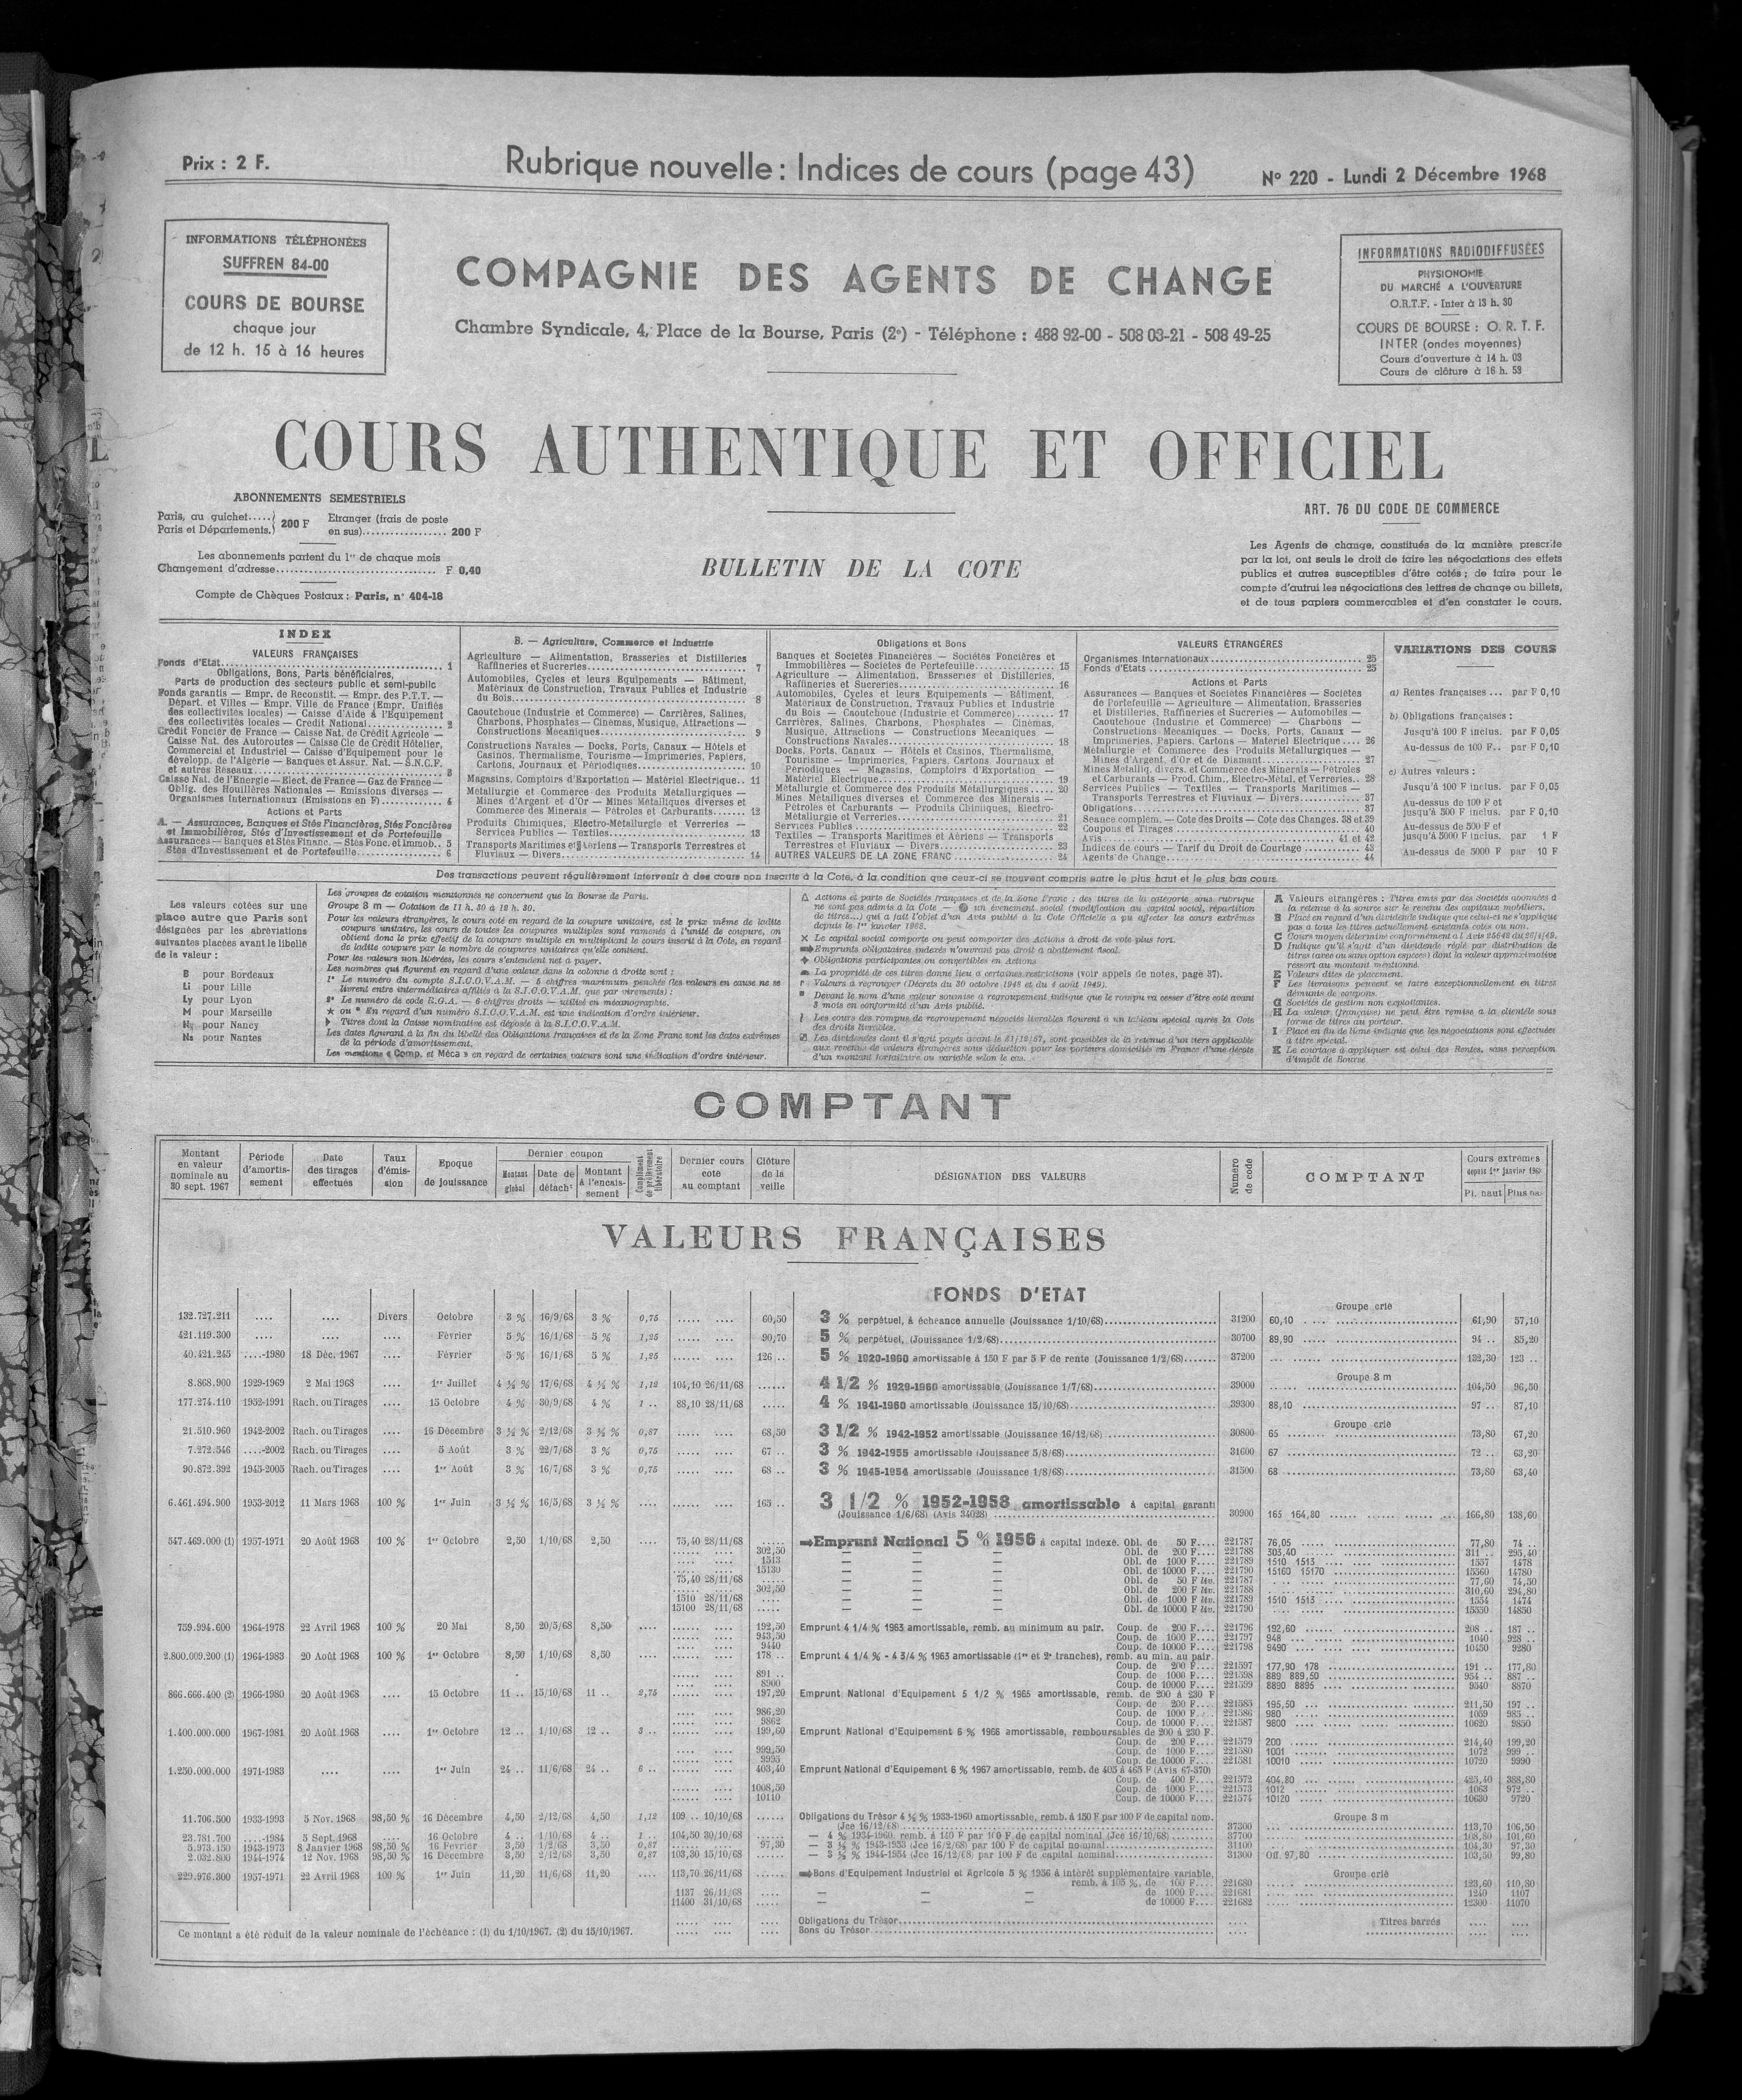 Prix : 2 F.
Rubrique nouvelle : Indices de cours (page 43)
N° 220 - Lundi 2 Décembre 1968
INFORMATIONS TÉLÉPHONÉES
SUFFREN 84-00
COURS DE BOURSE
chaque jour
de 12 h. 15 à 16 heures
COMPAGNIE DES AGENTS DE CHANGE
Chambre Syndicale, 4, Place de la Bourse, Paris (2e) - Téléphone : 488 92-00 - 508 03-21 - 508 49-25
INFORMATIONS RADIODIFFUSÉES
PHYSIONOMIE
DU MARCHÉ A L'OUVERTURE
O.R.T.F. - Inter à 13 h. 30
COURS DE BOURSE : O. R. T. F.
INTER (ondes moyennes)
Cours d'ouverture à 14 h. 03
Cours de clôture à 16 h. 53
COURS AUTHENTIQUE ET OFFICIEL
ABONNEMENTS SEMESTRIELS
Paris, au guichet.....
Paris et Départements.
200 F
Etranger (frais de poste
en sus).................. 200 F
Les abonnements partent du 1er de chaque mois
Changement d'adresse.................................. F 0,40
Compte de Chèques Postaux : Paris, n° 404-18
BULLETIN DE LA COTE
ART. 76 DU CODE DE COMMERCE
Les Agents de change, constitués de la manière prescrite
par la loi, ont seuls le droit de faire les négociations des effets
publics et autres susceptibles d'être cotés ; de faire pour le
compte d'autrui les négociations des lettres de change ou billets,
et de tous papiers commercables et d'en constater le cours.
INDEX
VALEURS FRANÇAISES
Fonds d'Etat........ 1
Obligations, Bons, Parts bénéficiaires,
Parts de production des secteurs public et semi-public
Fonds garantis — Empr. de Reconstit. — Empr. des P.T.T. —
Départ. et Villes — Empr. Ville de France (Empr. Unifiés
des collectivités locales) — Caisse d'Aide à l'Equipement
des collectivités locales — Crédit National........ 2
Crédit Foncier de France — Caisse Nat. de Crédit Agricole —
Caisse Nat. des Autoroutes — Caisse Cle de Crédit Hôtelier,
Commercial et Industriel — Caisse d'Equipement pour le
développ. de l'Algérie — Banques et Assur. Nat. — S.N.C.F.
et autres Réseaux........ 3
Caisse Nat. de l'Energie — Elect. de France — Gaz de France —
Oblig. des Houillères Nationales — Emissions diverses —
Organismes Internationaux (Emissions en F)........ 4
Actions et Parts
A. — Assurances, Banques et Stés Financières, Stés Foncières
et Immobilières, Stés d'Investissement et de Portefeuille
Assurances — Banques et Stés Financ. — Stés Fonc. et Immob.. 5
Stés d'Investissement et de Portefeuille........ 6
B. — Agriculture, Commerce et Industrie
Agriculture — Alimentation, Brasseries et Distilleries
Raffineries et Sucreries........ 7
Automobiles, Cycles et leurs Equipements — Bâtiment,
Matériaux de Construction, Travaux Publics et Industrie
du Bois........ 8
Caoutchouc (Industrie et Commerce) — Carrières, Salines,
Charbons, Phosphates — Cinémas, Musique, Attractions —
Constructions Mécaniques........ 9
Constructions Navales — Docks, Ports, Canaux — Hôtels et
Casinos, Thermalisme, Tourisme — Imprimeries, Papiers,
Cartons, Journaux et Périodiques........ 10
Magasins, Comptoirs d'Exportation — Matériel Electrique.. 11
Métallurgie et Commerce des Produits Métallurgiques —
Mines d'Argent et d'Or — Mines Métalliques diverses et
Commerce des Minerais — Pétroles et Carburants........ 12
Produits Chimiques, Electro-Métallurgie et Verreries —
Services Publics — Textiles........ 13
Transports Maritimes et Aériens — Transports Terrestres et
Fluviaux — Divers........ 14
Obligations et Bons
Banques et Sociétés Financières — Sociétés Foncières et
Immobilières — Sociétés de Portefeuille........ 15
Agriculture — Alimentation, Brasseries et Distilleries,
Raffineries et Sucreries........ 16
Automobiles, Cycles et leurs Equipements — Bâtiment,
Matériaux de Construction, Travaux Publics et Industrie
du Bois — Caoutchouc (Industrie et Commerce)........ 17
Carrières, Salines, Charbons, Phosphates — Cinémas,
Musique, Attractions — Constructions Mécaniques —
Constructions Navales........ 18
Docks, Ports, Canaux — Hôtels et Casinos, Thermalisme,
Tourisme — Imprimeries, Papiers, Cartons, Journaux et
Périodiques — Magasins, Comptoirs d'Exportation —
Matériel Electrique........ 19
Métallurgie et Commerce des Produits Métallurgiques..... 20
Mines Métalliques diverses et Commerce des Minerais —
Pétroles et Carburants — Produits Chimiques, Electro-
Métallurgie et Verreries........ 21
Services Publics........ 22
Textiles — Transports Maritimes et Aériens — Transports
Terrestres et Fluviaux — Divers........ 23
AUTRES VALEURS DE LA ZONE FRANC........ 24
VALEURS ÉTRANGÈRES
Organismes Internationaux........ 25
Fonds d'Etats........ 25
Actions et Parts
Assurances — Banques et Sociétés Financières — Sociétés
de Portefeuille — Agriculture — Alimentation, Brasseries
et Distilleries, Raffineries et Sucreries — Automobiles —
Caoutchouc (Industrie et Commerce) — Charbons —
Constructions Mécaniques — Docks, Ports, Canaux —
Imprimeries, Papiers, Cartons — Matériel Electrique.... 26
Métallurgie et Commerce des Produits Métallurgiques —
Mines d'Argent, d'Or et de Diamant........ 27
Mines Métalliq. divers. et Commerce des Minerais — Pétroles
et Carburants — Prod. Chim., Electro-Métal, et Verreries.. 28
Services Publics — Textiles — Transports Maritimes —
Transports Terrestres et Fluviaux — Divers........ 37
Obligations........ 37
Séance complém. — Cote des Droits — Cote des Changes. 38 et 39
Coupons et Tirages........ 40
Avis........ 41 et 42
Indices de cours — Tarif du Droit de Courtage........ 43
Agents de Change........ 44
VARIATIONS DES COURS
a) Rentes françaises ... par F 0,10
b) Obligations françaises :
Jusqu'à 100 F inclus. par F 0,05
Au-dessus de 100 F.. par F 0,10
c) Autres valeurs :
Jusqu'à 100 F inclus. par F 0,05
Au-dessus de 100 F et
jusqu'à 500 F inclus. par F 0,10
Au-dessus de 500 F et
jusqu'à 5000 F inclus. par 1 F
Au-dessus de 5000 F par 10 F
Des transactions peuvent régulièrement intervenir à des cours non inscrits à la Cote, à la condition que ceux-ci se trouvent compris entre le plus haut et le plus bas cours.
Les valeurs cotées sur une
place autre que Paris sont
désignées par les abréviations
suivantes placées avant le libellé
de la valeur :
B pour Bordeaux
Li pour Lille
Ly pour Lyon
M pour Marseille
Ny pour Nancy
Ns pour Nantes
Les groupes de cotation mentionnés ne concernent que la Bourse de Paris.
Groupe 3 m — Cotation de 11 h. 30 à 12 h. 30.
Pour les valeurs étrangères, le cours coté en regard de la coupure unitaire, est le prix même de ladite
coupure unitaire, les cours de toutes les coupures multiples sont ramenés à l'unité de coupure, on
obtient donc le prix effectif de la coupure multiple en multipliant le cours inscrit à la Cote, en regard
de ladite coupure par le nombre de coupures unitaires qu'elle contient.
Pour les valeurs non libérées, les cours s'entendent net à payer.
Les nombres qui figurent en regard d'une valeur dans la colonne à droite sont :
1° Le numéro du compte S.I.C.O.V.A.M. — 5 chiffres maximum penchés (les valeurs en cause ne se
livrent entre intermédiaires affiliés à la S.I.C.O.V.A.M. que par virements) ;
2° Le numéro de code R.G.A. — 6 chiffres droits — utilisé en mécanographie.
★ ou * En regard d'un numéro S.I.C.O.V.A.M. est une indication d'ordre intérieur.
Titres dont la Caisse nominative est déposée à la S.I.C.O.V.A.M.
Les dates figurant à la fin du libellé des Obligations françaises et de la Zone Franc sont les dates extrêmes
de la période d'amortissement.
Les mentions « Comp. et Méca » en regard de certaines valeurs sont une indication d'ordre intérieur.
△ Actions et parts de Sociétés françaises et de la Zone Franc : des titres de la catégorie sous rubrique
ne sont pas admis à la Cote — un événement social (modification du capital social, répartition
de titres...) qui a fait l'objet d'un Avis publié à la Cote Officielle a pu affecter les cours extrêmes
depuis le 1er janvier 1968.
✕ Le capital social comporte ou peut comporter des Actions à droit de vote plus fort.
➡ Emprunts obligataires indexés n'ouvrant pas droit à abattement fiscal.
✦ Obligations participantes ou convertibles en Actions
La propriété de ces titres donne lieu à certaines restrictions (voir appels de notes, page 37).
r Valeurs à regrouper (Décrets du 30 octobre 1948 et du 4 août 1949).
Devant le nom d'une valeur soumise à regroupement indique que le rompu va cesser d'être coté avant
3 mois en conformité d'un Avis publié.
Les cours des rompus de regroupement négociés livrables figurent à un tableau spécial après la Cote
des droits livrables.
Les dividendes dont il s'agit payés avant le 31/12/67, sont passibles de la retenue d'un tiers applicable
aux revenus de valeurs étrangères sous déduction pour les porteurs domiciliés en France d'une décote
d'un montant forfaitaire ou variable selon le cas.
A Valeurs étrangères : Titres émis par des Sociétés abonnées à
la retenue à la source sur le revenu des capitaux mobiliers.
B Placé en regard d'un dividende indique que celui-ci ne s'applique
pas à tous les titres actuellement existants cotés ou non.
C Cours moyen déterminé conformément à l'Avis 25642 du 26/4/49.
D Indique qu'il s'agit d'un dividende réglé par distribution de
titres (avec ou sans option espèces) dont la valeur approximative
ressort au montant mentionné.
E Valeurs dites de placement.
F Les livraisons peuvent se faire exceptionnellement en titres
démunis de coupons.
G Sociétés de gestion non exploitantes.
H La valeur (française) ne peut être remise à la clientèle sous
forme de titres au porteur.
I Placé en fin de ligne indique que les négociations sont effectuées
à titre spécial.
K Le courtage à appliquer est celui des Rentes, sans perception
d'impôt de Bourse.
COMPTANT
Montant en valeur nominale au 30 sept. 1967
Période d'amortissement
Date des tirages effectués
Taux d'émission
Epoque de jouissance
Dernier coupon
Montant global
Date de détach^t
Montant à l'encaissement
Complément de prélèvement libératoire
Dernier cours coté au comptant
Clôture de la veille
DÉSIGNATION DES VALEURS
Numéro de code
COMPTANT
Cours extrêmes
depuis 1er janvier 196
Pl. haut Plus ba
VALEURS FRANÇAISES
FONDS D'ETAT
Groupe crié
132.727.211 .... .... Divers Octobre 3 % 16/9/68 3 % 0,75 ..... .... 60,50 3 % perpétuel, à échéance annuelle (Jouissance 1/10/68) 31200 60,10 61,90 57,10
421.119.300 .... .... .... Février 5 % 16/1/68 5 % 1,25 ..... .... 90,70 5 % perpétuel, (Jouissance 1/2/68) 30700 89,90 94 .. 85,20
40.421.245 ....-1980 18 Déc. 1967 .... Février 5 % 16/1/68 5 % 1,25 ...... .... 126 .. 5 % 1920-1960 amortissable à 150 F par 5 F de rente (Jouissance 1/2/68) 37200 132,30 123 ..
Groupe 3 m
8.868.900 1929-1969 2 Mai 1968 .... 1er Juillet 4 ½ % 17/6/68 4 ½ % 1,12 104,10 26/11/68 ...... 4 1/2 % 1929-1960 amortissable (Jouissance 1/7/68) 39000 104,50 96,50
177.274.110 1952-1991 Rach. ou Tirages .... 15 Octobre 4 % 30/9/68 4 % 1 .. 88,10 28/11/68 ..... 4 % 1941-1960 amortissable (Jouissance 15/10/68) 39300 88,10 97 .. 87,10
Groupe crié
21.510.960 1942-2002 Rach. ou Tirages .... 16 Décembre 3 ½ % 2/12/68 3 ½ % 0,87 ..... .... 68,50 3 1/2 % 1942-1952 amortissable (Jouissance 16/12/68) 30800 65 73,80 67,20
7.272.546 ....-2002 Rach. ou Tirages .... 5 Août 3 % 22/7/68 3 % 0,75 ..... .... 67 .. 3 % 1942-1955 amortissable (Jouissance 5/8/68) 31600 67 72 .. 63,20
90.872.392 1945-2005 Rach. ou Tirages .... 1er Août 3 % 16/7/68 3 % 0,75 ..... .... 68 .. 3 % 1945-1954 amortissable (Jouissance 1/8/68) 31500 68 73,80 63,40
6.461.494.900 1953-2012 11 Mars 1968 100 % 1er Juin 3 ½ % 16/5/68 3 ½ % .... ...... .... 165 .. 3 1/2 % 1952-1958 amortissable à capital garanti
(Jouissance 1/6/68) (Avis 34028) 30900 165 164,80 166,80 138,60
547.469.000 (1) 1957-1971 20 Août 1968 100 % 1er Octobre 2,50 1/10/68 2,50 .... 75,40 28/11/68 ..... ➡Emprunt National 5 % 1956 à capital indexé. Obl. de 50 F.... 221787 76,05 77,80 74 ..
302,50 — — — Obl. de 200 F.... 221788 303,40 311 .. 295,40
1513 — — — Obl. de 1000 F.... 221789 1510 1513 1557 1478
15130 — — — Obl. de 10000 F.... 221790 15160 15170 15560 14780
75,40 28/11/68 — — — Obl. de 50 F liv. 221787 77,60 74,50
302,50 — — — Obl. de 200 F liv. 221788 310,60 294,80
1510 28/11/68 — — — Obl. de 1000 F liv. 221789 1510 1513 1554 1474
15100 28/11/68 — — — Obl. de 10000 F liv. 221790 15550 14850
759.994.600 1964-1978 22 Avril 1968 100 % 20 Mai 8,50 20/5/68 8,50 .... ...... .... 192,50 Emprunt 4 1/4 % 1963 amortissable, remb. au minimum au pair. Coup. de 200 F.... 221796 192,60 208 .. 187 ..
943,50 Coup. de 1000 F.... 221797 948 1040 928 ..
9440 Coup. de 10000 F.... 221798 9490 10450 9280
2.800.009.200 (1) 1964-1983 20 Août 1968 100 % 1er Octobre 8,50 1/10/68 8,50 .... ...... .... 178 .. Emprunt 4 1/4 % - 4 3/4 % 1963 amortissable (1re et 2e tranches), remb. au min. au pair.
Coup. de 200 F.... 221597 177,90 178 191 .. 177,80
891 .. Coup. de 1000 F.... 221598 889 889,50 954 .. 887 ..
8900 Coup. de 10000 F.... 221599 8890 8895 9540 8870
866.666.400 (2) 1966-1980 20 Août 1968 .... 15 Octobre 11 .. 15/10/68 11 .. 2,75 ...... .... 197,20 Emprunt National d'Equipement 5 1/2 % 1965 amortissable, remb. de 200 à 230 F
Coup. de 200 F.... 221585 195,50 211,50 197 ..
986,20 Coup. de 1000 F.... 221586 980 1059 985 ..
9862 Coup. de 10000 F.... 221587 9800 10620 9850
1.400.000.000 1967-1981 20 Août 1968 .... 1er Octobre 12 .. 1/10/68 12 .. 3 .. ...... .... 199,60 Emprunt National d'Equipement 6 % 1966 amortissable, remboursables de 200 à 230 F.
Coup. de 200 F.... 221579 200 214,40 199,20
999,50 Coup. de 1000 F.... 221580 1001 1072 999 ..
9995 Coup. de 10000 F.... 221581 10010 10720 9990
1.250.000.000 1971-1983 .... .... 1er Juin 24 .. 11/6/68 24 .. 6 .. ...... .... 403,40 Emprunt National d'Equipement 6 % 1967 amortissable, remb. de 405 à 465 F (Avis 67-370)
Coup. de 400 F.... 221572 404,80 425,40 388,80
1008,50 Coup. de 1000 F.... 221573 1012 1063 972 ..
10110 Coup. de 10000 F.... 221574 10120 10630 9720
Groupe 3 m
11.706.500 1933-1993 5 Nov. 1968 98,50 % 16 Décembre 4,50 2/12/68 4,50 1,12 109 .. 10/10/68 ...... Obligations du Trésor 4 ½ % 1933-1960 amortissable, remb. à 150 F par 100 F de capital nom.
(Jce 16/12/68) 37300 113,70 106,50
23.781.700 ....-1984 5 Sept. 1968 ..... 16 Octobre 4 .. 1/10/68 4 .. 1 .. 104,50 30/10/68 — 4 % 1934-1960, remb. à 140 F par 100 F de capital nominal (Jce 16/10/68) 37700 108,80 101,60
5.973.150 1943-1973 8 Janvier 1968 98,50 % 16 Février 3,50 1/2/68 3,50 0,87 97,30 — 3 ½ % 1943-1953 (Jce 16/2/68) par 100 F de capital nominal 31100 104,30 97,30
2.032.800 1944-1974 12 Nov. 1968 98,50 % 16 Décembre 3,50 2/12/68 3,50 0,87 103,30 15/10/68 — 3 ½ % 1944-1954 (Jce 16/12/68) par 100 F de capital nominal 31300 Off. 97,80 103,50 99,80
Groupe crié
229.976.300 1957-1971 22 Avril 1968 100 % 1er Juin 11,20 11/6/68 11,20 .... 113,70 26/11/68 ➡Bons d'Equipement Industriel et Agricole 5 % 1956 à intérêt supplémentaire variable,
remb. à 105 %, de 100 F.... 221680 123,60 110,80
1137 26/11/68 — — — de 1000 F.... 221681 1240 1107
11400 31/10/68 — — — de 10000 F.... 221682 12300 11070
Obligations du Trésor........ Titres barrés
Bons du Trésor........
Ce montant a été réduit de la valeur nominale de l'échéance : (1) du 1/10/1967. (2) du 15/10/1967.